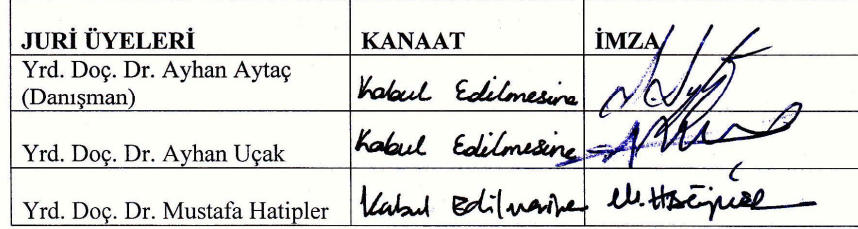 JURİ ÜYELERİ KANAAT İMZA
Yrd. Doç. Dr. Ayhan Aytaç
(Danışman) Kabul Edilmesine
Yrd. Doç. Dr. Ayhan Uçak Kabul Edilmesine
Yrd. Doç. Dr. Mustafa Hatipler Kabul Edilmesine